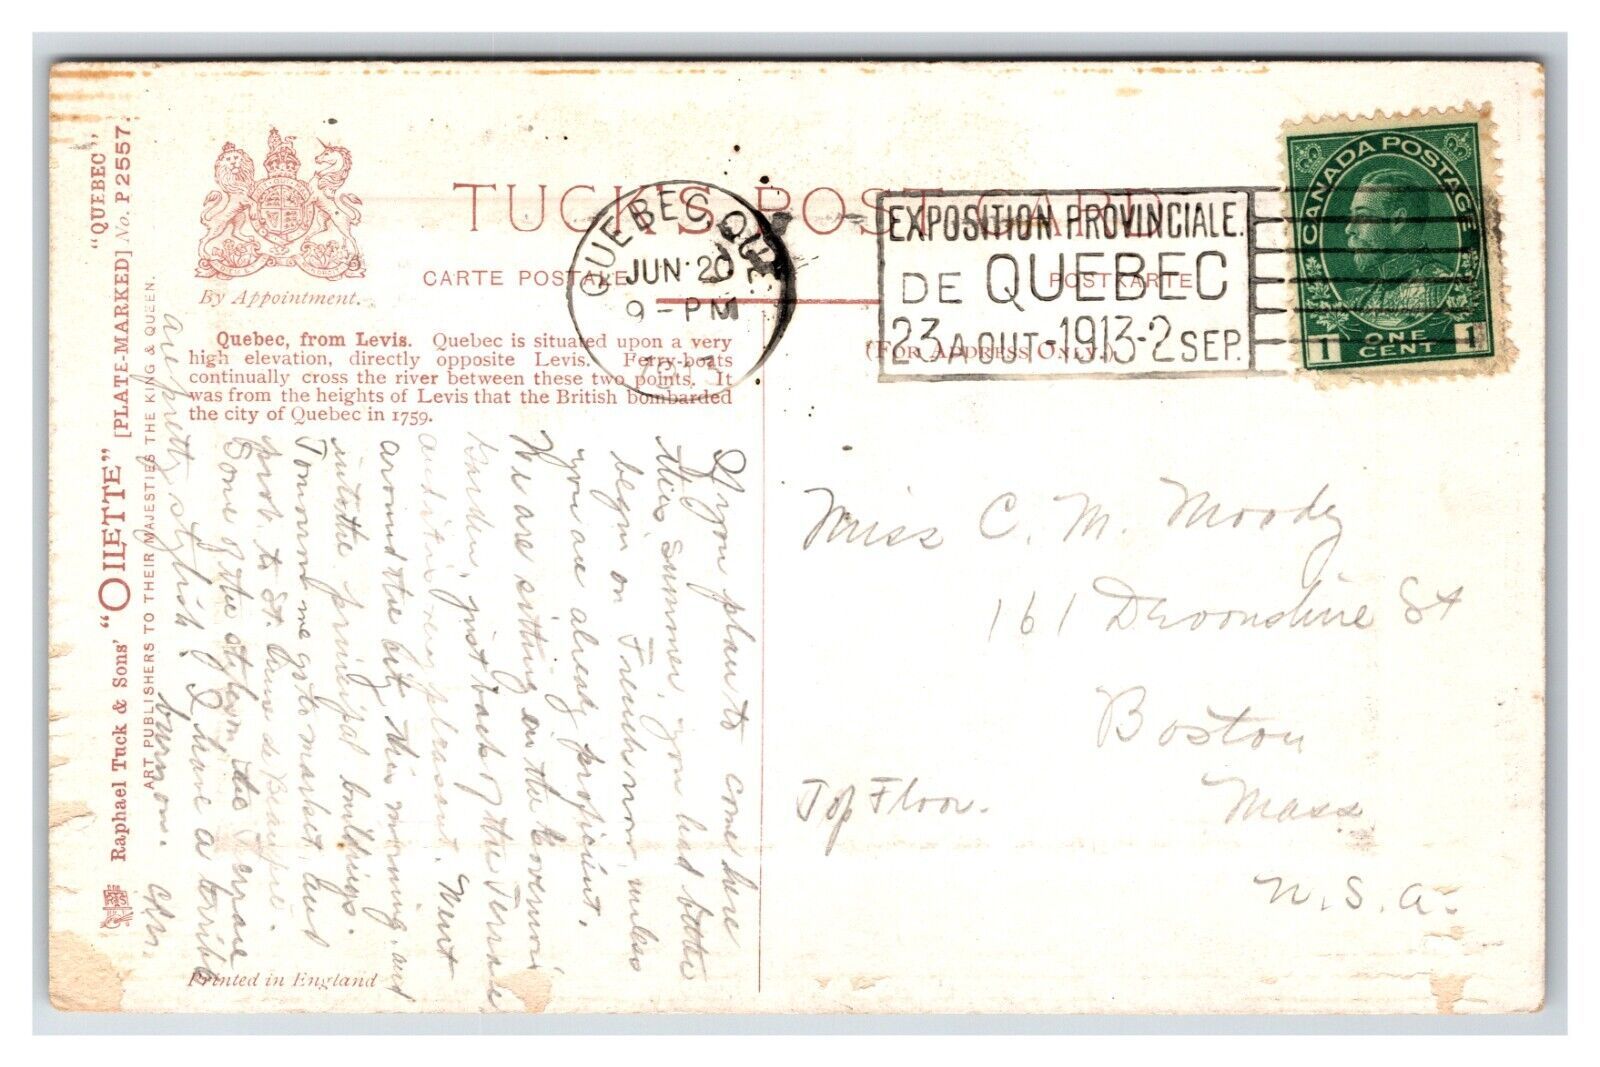 "QUEBEC"
[PLATE-MARKED] No. P 2557.
Raphael Tuck & Sons' "OILETTE"
ART PUBLISHERS TO THEIR MAJESTIES THE KING & QUEEN.
By Appointment.
TUCK'S POST CARD
CARTE POSTALE
POSTKARTE
(FOR ADDRESS ONLY.)
Quebec, from Levis. Quebec is situated upon a very
high elevation, directly opposite Levis. Ferry-boats
continually cross the river between these two points. It
was from the heights of Levis that the British bombarded
the city of Quebec in 1759.
QUEBEC, QUE.
JUN 20
9 - PM
1913
EXPOSITION PROVINCIALE.
DE QUEBEC
23 AOUT-1913-2 SEP.
CANADA POSTAGE
1 ONE CENT 1
If you plan to come here
this summer, you had better
begin on French now, unless
you are already proficient.
We are sitting in the Governor
Garden, just back of the Terrace
and it is very pleasant. Went
around the city this morning, and
into the principal buildings.
Tomorrow we go to market, and
prob. to St. Anne de Beaupré.
Some of the on the Terrace
are pretty stylish. I have a terrible
burn now. CAM.
Miss C. M. Moody
161 Devonshire St
Boston
Top Floor. Mass
U.S.A.
Printed in England